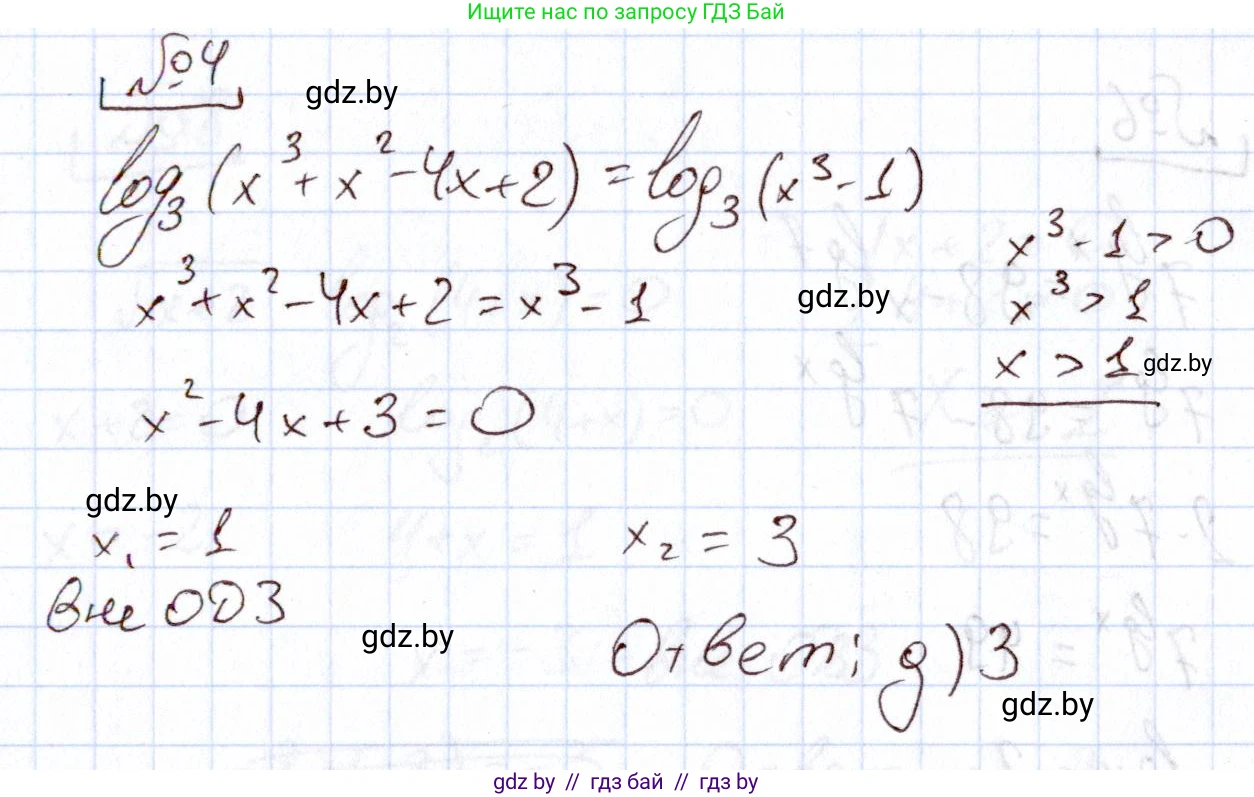 Ищите нас по запросу ГДЗ Бай
№4
gdz.by
log₃(x³+x²-4x+2)=log₃(x³-1)
x³-1>0
x³+x²-4x+2=x³-1
gdz.by
x³>1
x>1
gdz.by
x²-4x+3=0
gdz.by
x₁=1
x₂=3
вне ОДЗ
gdz.by
Ответ: д)3
gdz.by
gdz by // гдз бай // гдз by